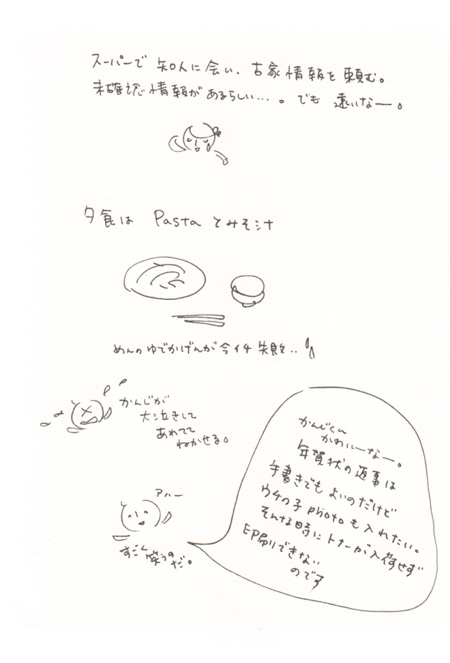 スーパーで 知人に会い、古家情報を頼む。
未確認情報があるらしい…。でも 遠いなー。
夕食は Pasta とみそ汁
めんのゆでかげんが今イチ 失敗..
かんじが
大泣きして
あれてて
ねかせる。
アハー
すごく笑うのだ。
かんじくん
かわいーなー。
年賀状の返事は
手書きでもよいのだけど
ウチの子photoも入れたい。
そんな時にトナーが入荷せず
印刷できない
のです